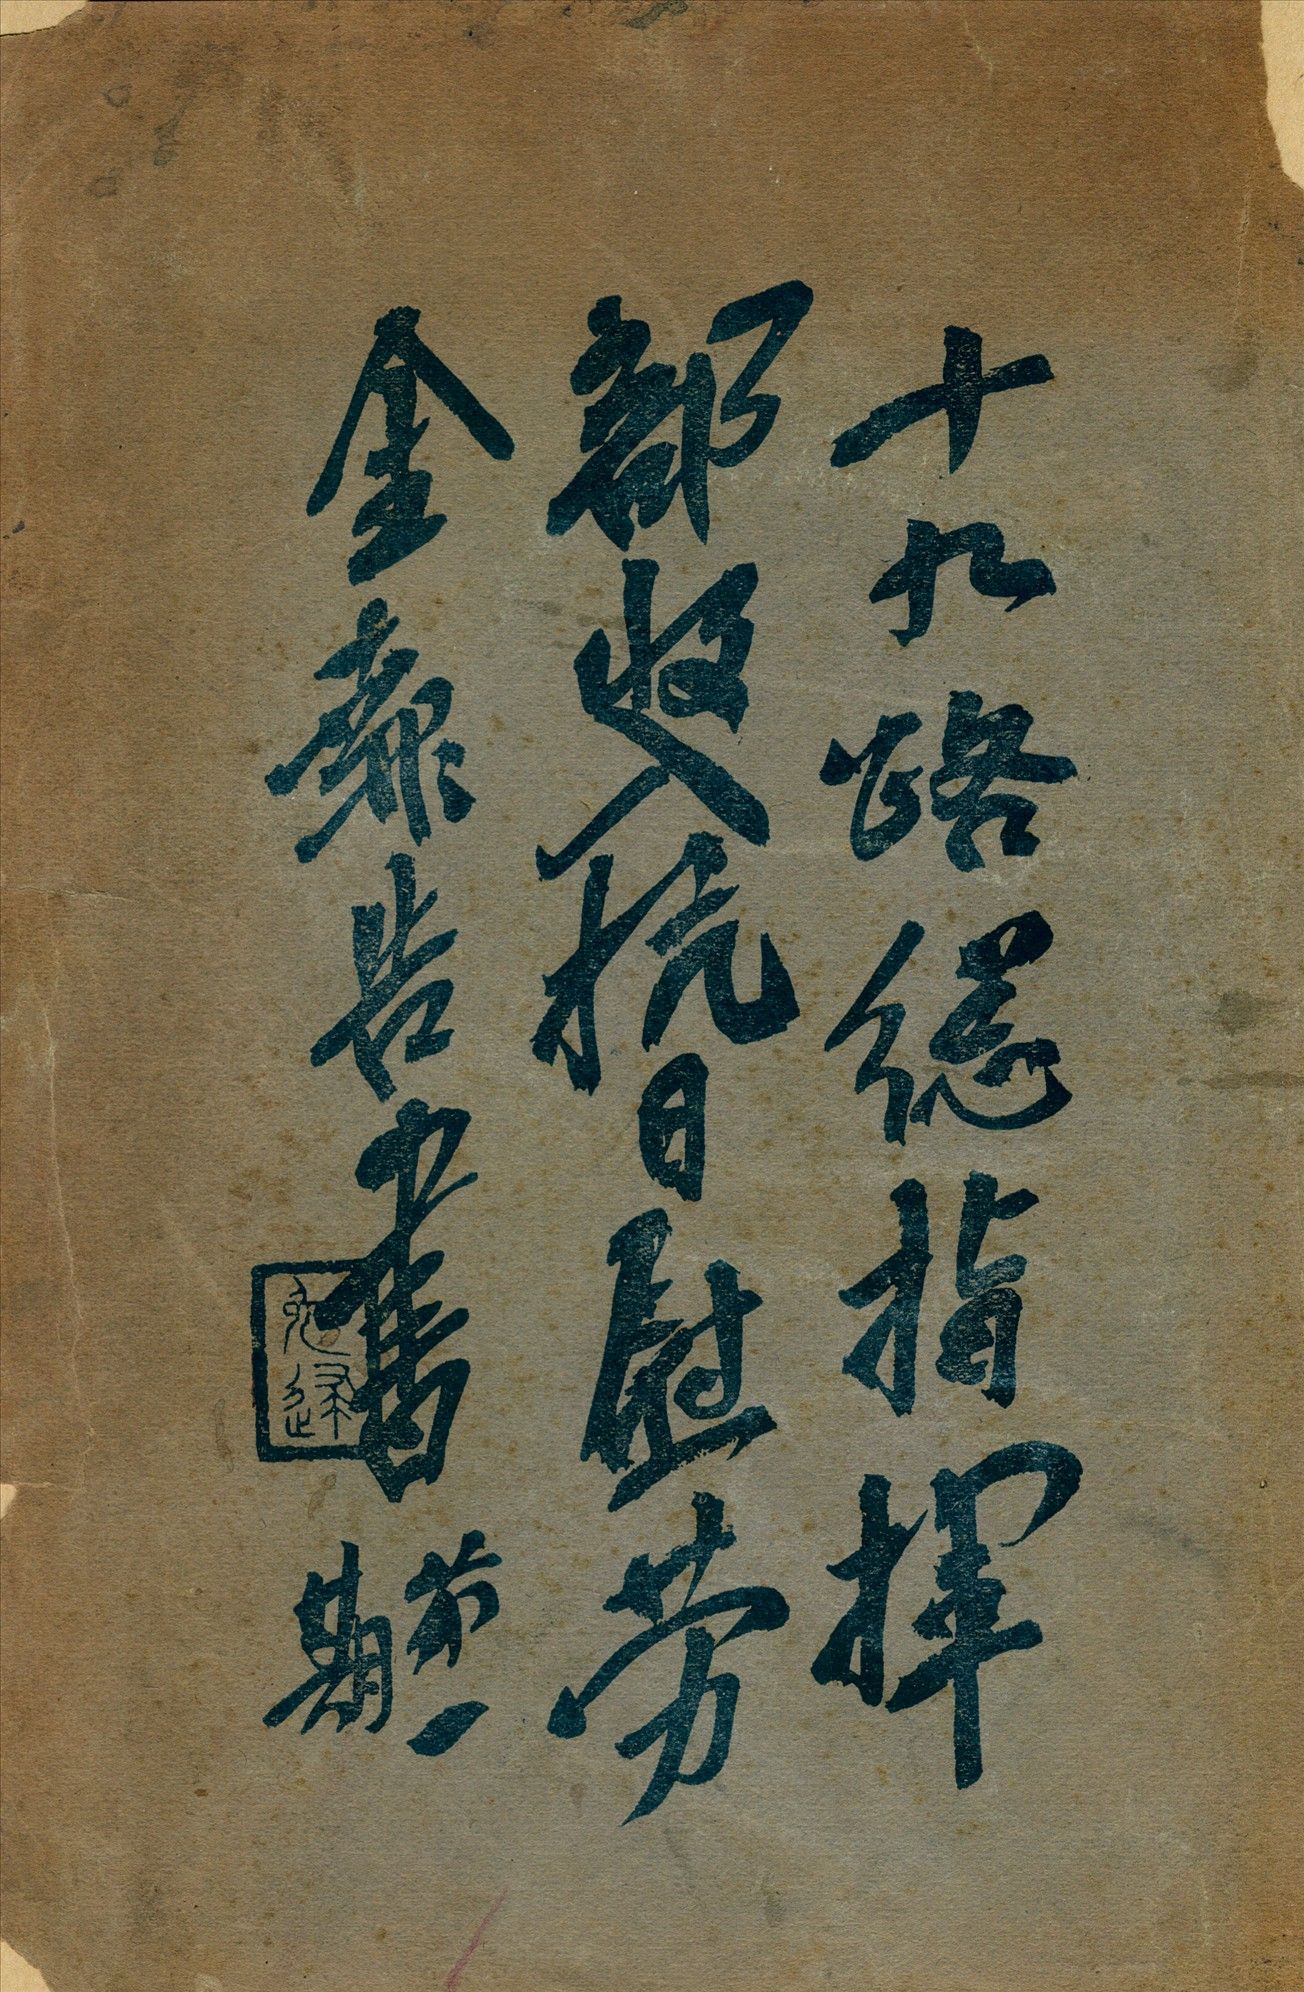 十九路總指揮
部收入抗日慰劳
金報告書
第一
期